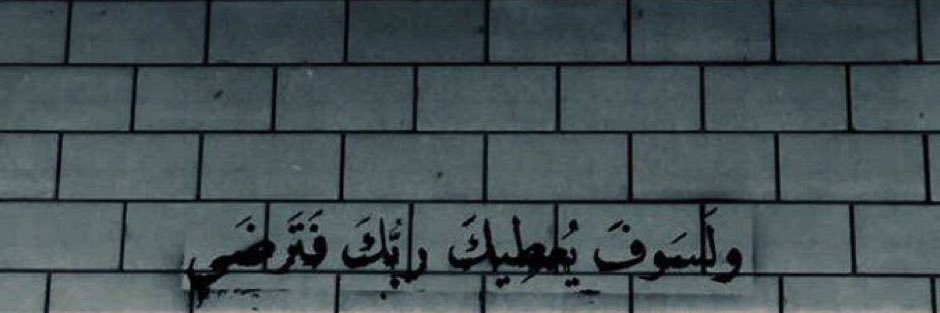 ولَسَوفَ يُعطِيكَ رَبُّكَ فَتَرضَى